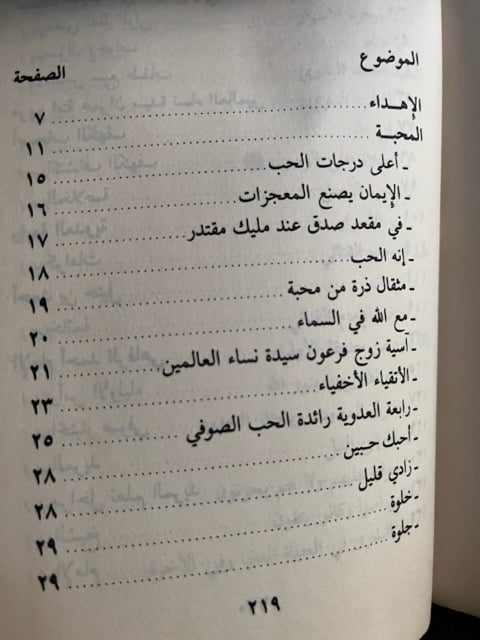 الموضوع الصفحة
الإهداء ........ ٧
المحبة ........ ١١
ـ أعلى درجات الحب ........ ١٥
ـ الإيمان يصنع المعجزات ........ ١٦
ـ في مقعد صدق عند مليك مقتدر ........ ١٧
ـ إنه الحب ........ ١٨
ـ مثقال ذرة من محبة ........ ١٩
ـ مع الله في السماء ........ ٢٠
ـ آسية زوج فرعون سيدة نساء العالمين ........ ٢١
ـ الأتقياء الأخفياء ........ ٢٣
ـ رابعة العدوية رائدة الحب الصوفي ........ ٢٥
ـ أحبك حبين ........ ٢٨
ـ زادي قليل ........ ٢٨
ـ خلوة ........ ٢٩
ـ جلوة ........ ٢٩
٢١٩